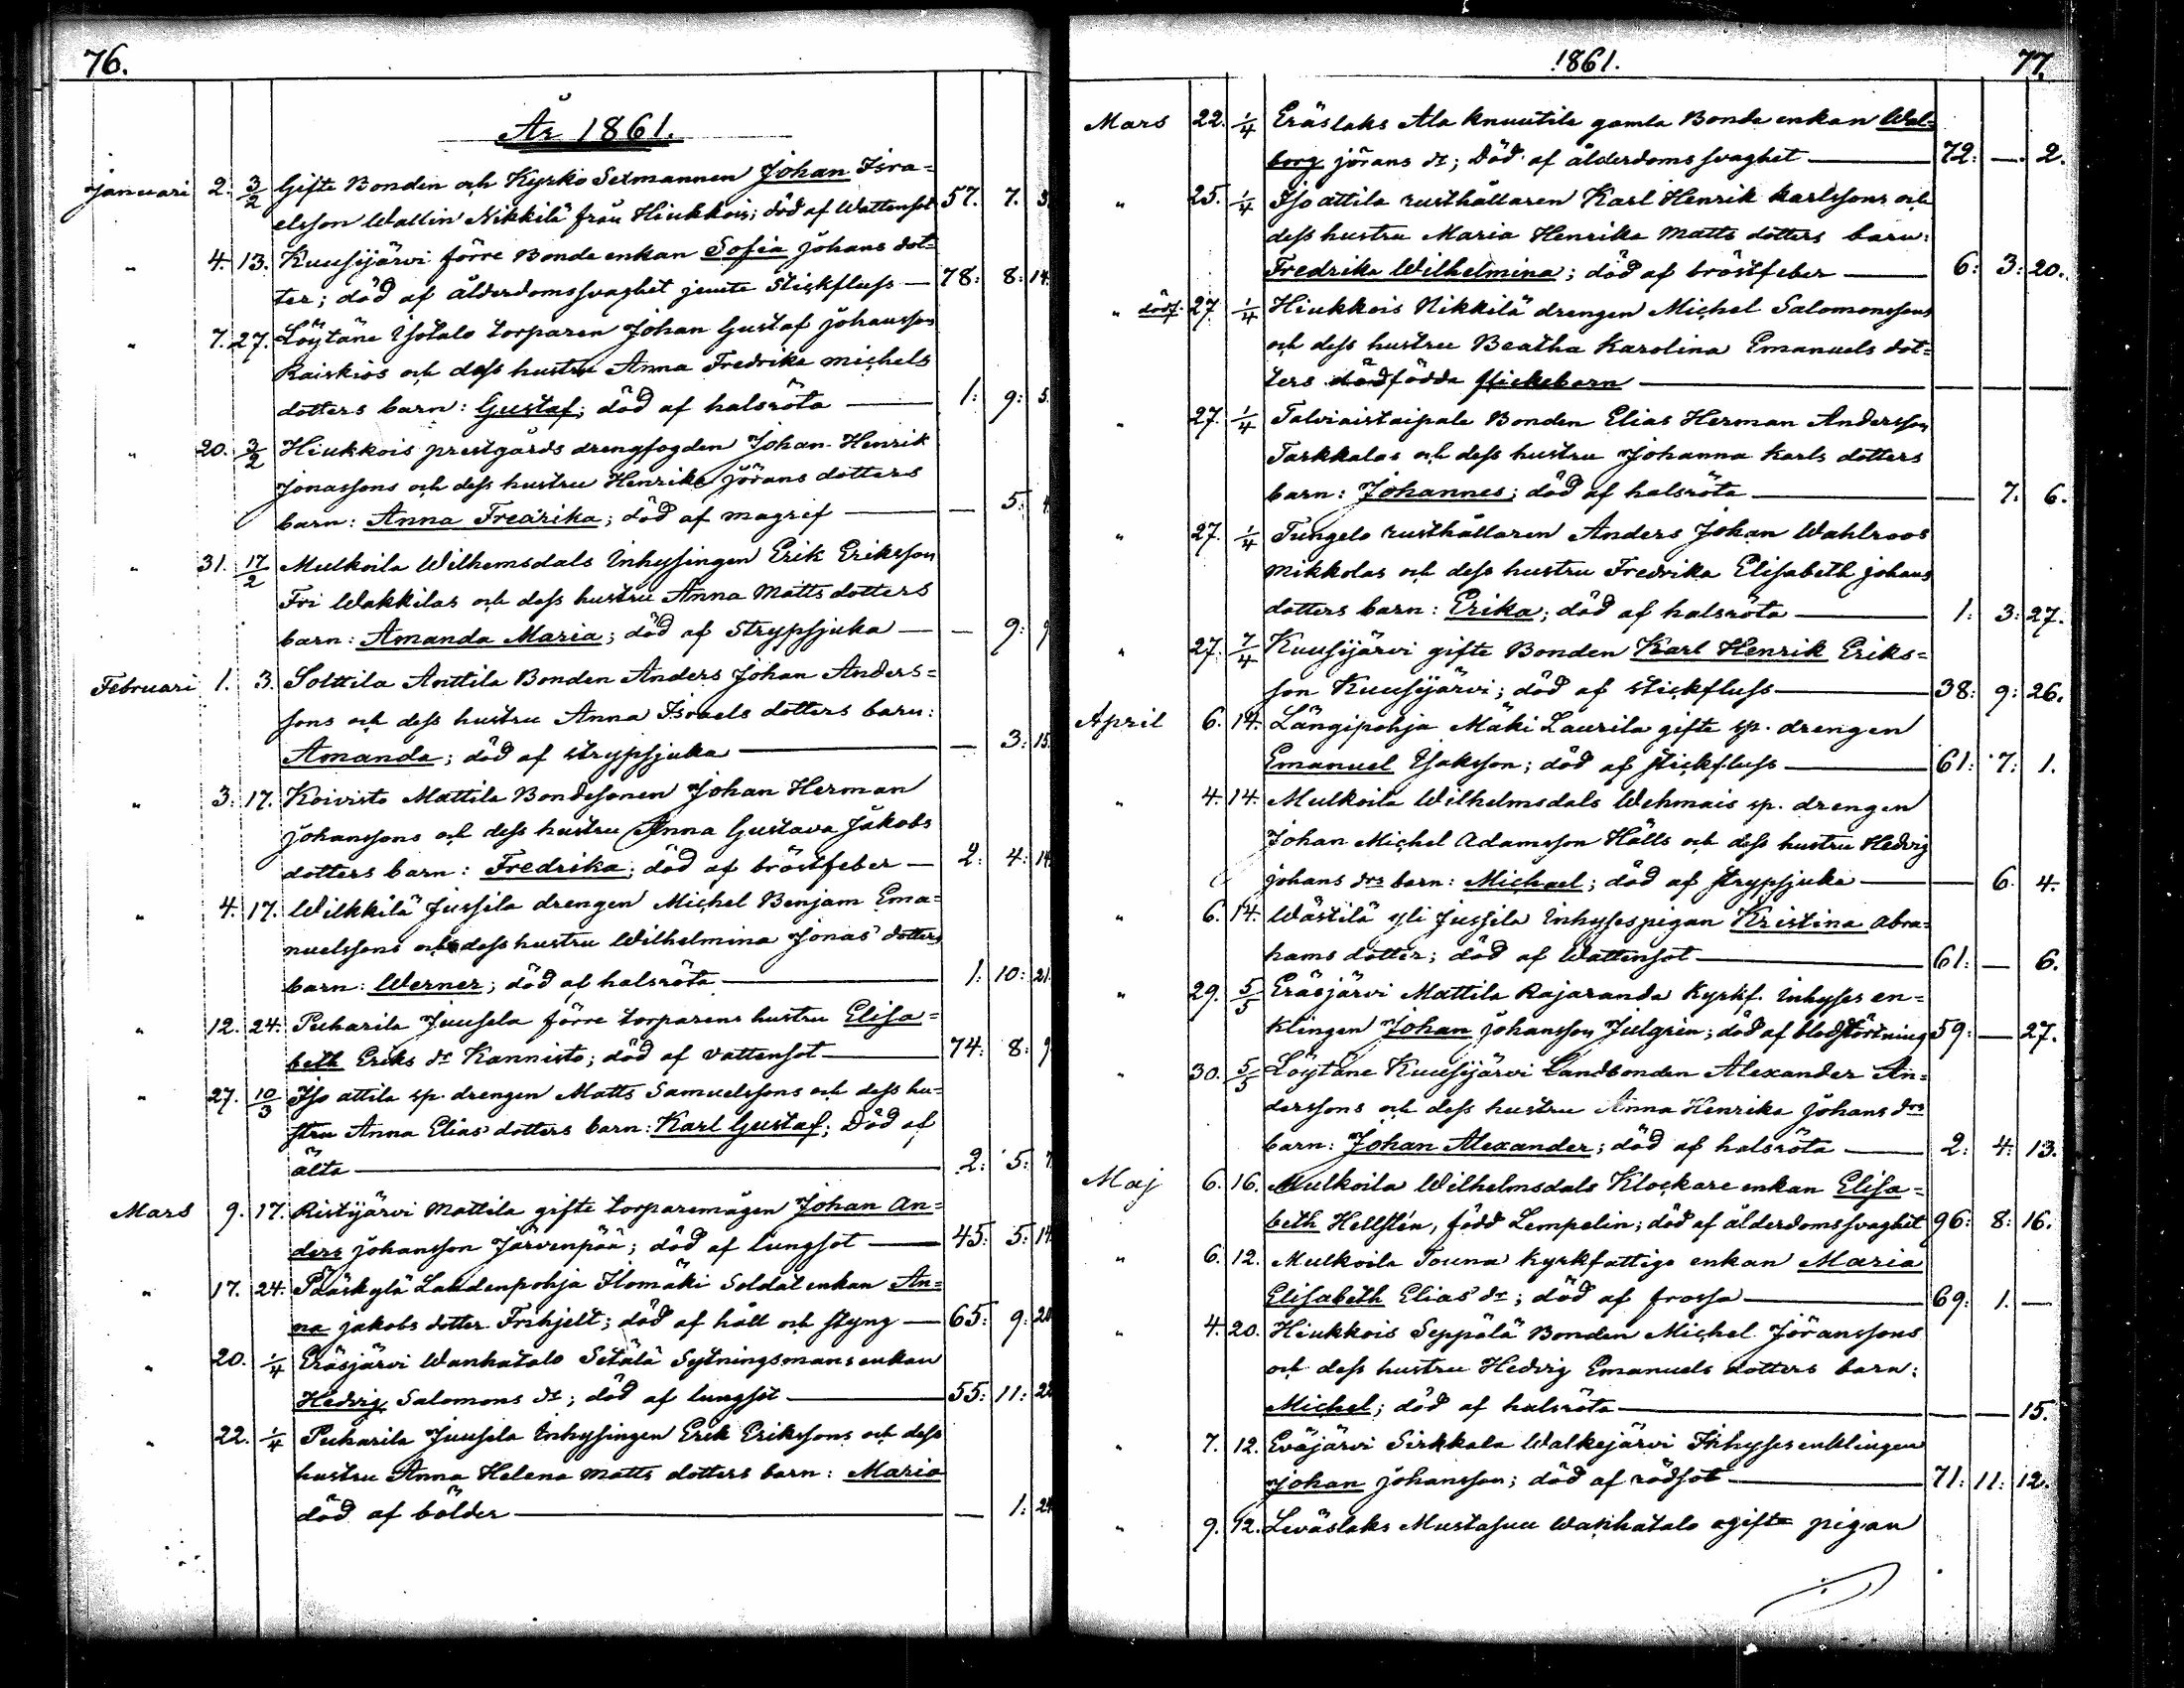 76.
År 1861.
Januari 2. 3/2 Gifte Bonden och Kyrko Sexmannen Johan Isra=
elsson Wallin Nikkilä från Hiukkois; död af Wattensot 57. 7. 3
" 4. 13. Kuusijärvi förre Bonde enkan Sofia Johans dot=
ter; död af ålderdomssvaghet jemte Stickfluss — 78: 8: 14.
" 7. 27. Löytäne Ysotalo torparen Johan Gustaf Johansson
Raiskios och dess hustru Anna Fredrika Michels
dotters barn: Gustaf; död af halsröta — 1: 9: 5.
" 20. 3/2 Hiukkois prestgårds drengfogden Johan Henrik
Jonassons och dess hustru Henrika Jörans dotters
barn: Anna Fredrika; död af magref — — 5. 4
" 31. 17/2 Mulkoila Wilhemsdals Inhysingen Erik Eriksson
Fri Wakkilas och dess hustru Anna Matts dotters
barn: Amanda Maria; död af Strypsjuka — — 9: 9
Februari 1. 3. Solttila Anttila Bonden Anders Johan Anders=
sons och dess hustru Anna Israels dotters barn:
Amanda; död af strypsjuka — — 3: 15.
" 3. 17. Koivisto Mattila Bondesonen Johan Herman
Johanssons och dess hustru Anna Gustava Jakobs
dotters barn: Fredrika; död af bröstfeber — 2: 4: 14
" 4. 17. Wilkkilä Jussila drengen Michel Benjam Ema=
nuelssons och dess hustru Wilhelmina Jonas dotters
barn: Werner; död af halsröta — 1: 10: 21.
" 12. 24. Puharila Juusela förre torparens hustru Elisa=
beth Eriks dr Kannisto; död af vattensot — 74: 8: 9
" 27. 10/3 Iso attila sp. drengen Matts Samuelssons och dess hu=
stru Anna Elias dotters barn: Karl Gustaf; Död af
älta — 2: 5: 7
Mars 9. 17. Ristijärvi Mattila gifte torparemågen Johan An=
ders Johansson Järvenpää; död af lungsot — 45: 5: 14
" 17. 24. Pääskylä Lahdenpohja Ilomäki Soldat enkan An=
na Jakobs dotter Frihjelt; död af håll och styng — 65: 9: 20
" 20. 1/4 Eräsjärvi Wanhatalo Setälä Sytningsmans enkan
Hedvig Salomons dr; död af lungsot — 55: 11: 22
" 22. 1/4 Puharila Juusela Inhysingen Erik Erikssons och dess
hustru Anna Helena Matts dotters barn: Maria
död af bölder — — 1: 24
1861. 77.
Mars 22. 1/4 Eräslaks Ala Knuutila gamla Bonde enkan Wal=
borg Jörans dr; Död af ålderdoms svaghet — 72: — 2.
" 25. 1/4 Iso attila rusthållaren Karl Henrik Karlssons och
dess hustru Maria Henrika Matts dotters barn:
Fredrika Wilhelmina; död af bröstfeber — 6: 3: 20.
" dödf. 27. 1/4 Hiukkois Nikkilä drengen Michel Salomonssons
och dess hustru Beatha Karolina Emanuels dot=
ters dödfödda flickebarn — — — —
" 27. 1/4 Talviaistaipale Bonden Elias Herman Andersson
Tarkkalas och dess hustru Johanna Karls dotters
barn: Johannes; död af halsröta — — 7: 6.
" 27. 1/4 Tungelo rusthållaren Anders Johan Wahlroos
Mikkolas och dess hustru Fredrika Elisabeth Johans
dotters barn: Erika; död af halsröta — 1: 3: 27.
" 27. 7/4 Kuusijärvi gifte Bonden Karl Henrik Eriks=
son Kuusijärvi; död af stickfluss — 38: 9: 26.
April 6. 14. Längipohja Mäki Laurila gifte sp. drengen
Emanuel Ysaksson; död af stickfluss — 61: 7: 1.
" 4. 14. Mulkoila Wilhelmsdals Wehmais sp. drengen
Johan Michel Adamsson Hälls och dess hustru Hedvig
Johans drs barn: Michael; död af strypsjuka — — 6. 4.
" 6. 14. Wästilä yli Jussila Inhyses pigan Kristina Abra=
hams dotter; död af Wattensot — 61: — 6.
" 29. 5/5 Eräsjärvi Mattila Rajaranda Kyrkf. Inhyses en=
klingen Johan Johansson Julgren; död af blodstörtning 59: — 27.
" 30. 5/5 Löytäne Kuusijärvi Landbonden Alexander An=
derssons och dess hustru Anna Henrika Johans drs
barn: Johan Alexander; död af halsröta — 2: 4: 13.
Maj 6. 16. Mulkoila Wilhelmsdals Klockare enkan Elisa=
beth Hellstén, född Lempelin; död af ålderdoms svaghet 96: 8: 16.
" 6. 12. Mulkoila Touna Kyrkfattige enkan Maria
Elisabeth Elias dr; död af frossa — 69: 1. —
" 4. 20. Hiukkois Seppälä Bonden Michel Jöranssons
och dess hustru Hedvig Emanuels dotters barn:
Michel; död af halsröta — — — 15.
" 7. 12. Eväjärvi Sirkkala Walkejärvi Inhyses enklingen
Johan Johansson; död af rödsot — 71: 11: 12.
" 9. 12. Leväslaks Mustasuu Wanhatalo ogifta pigan